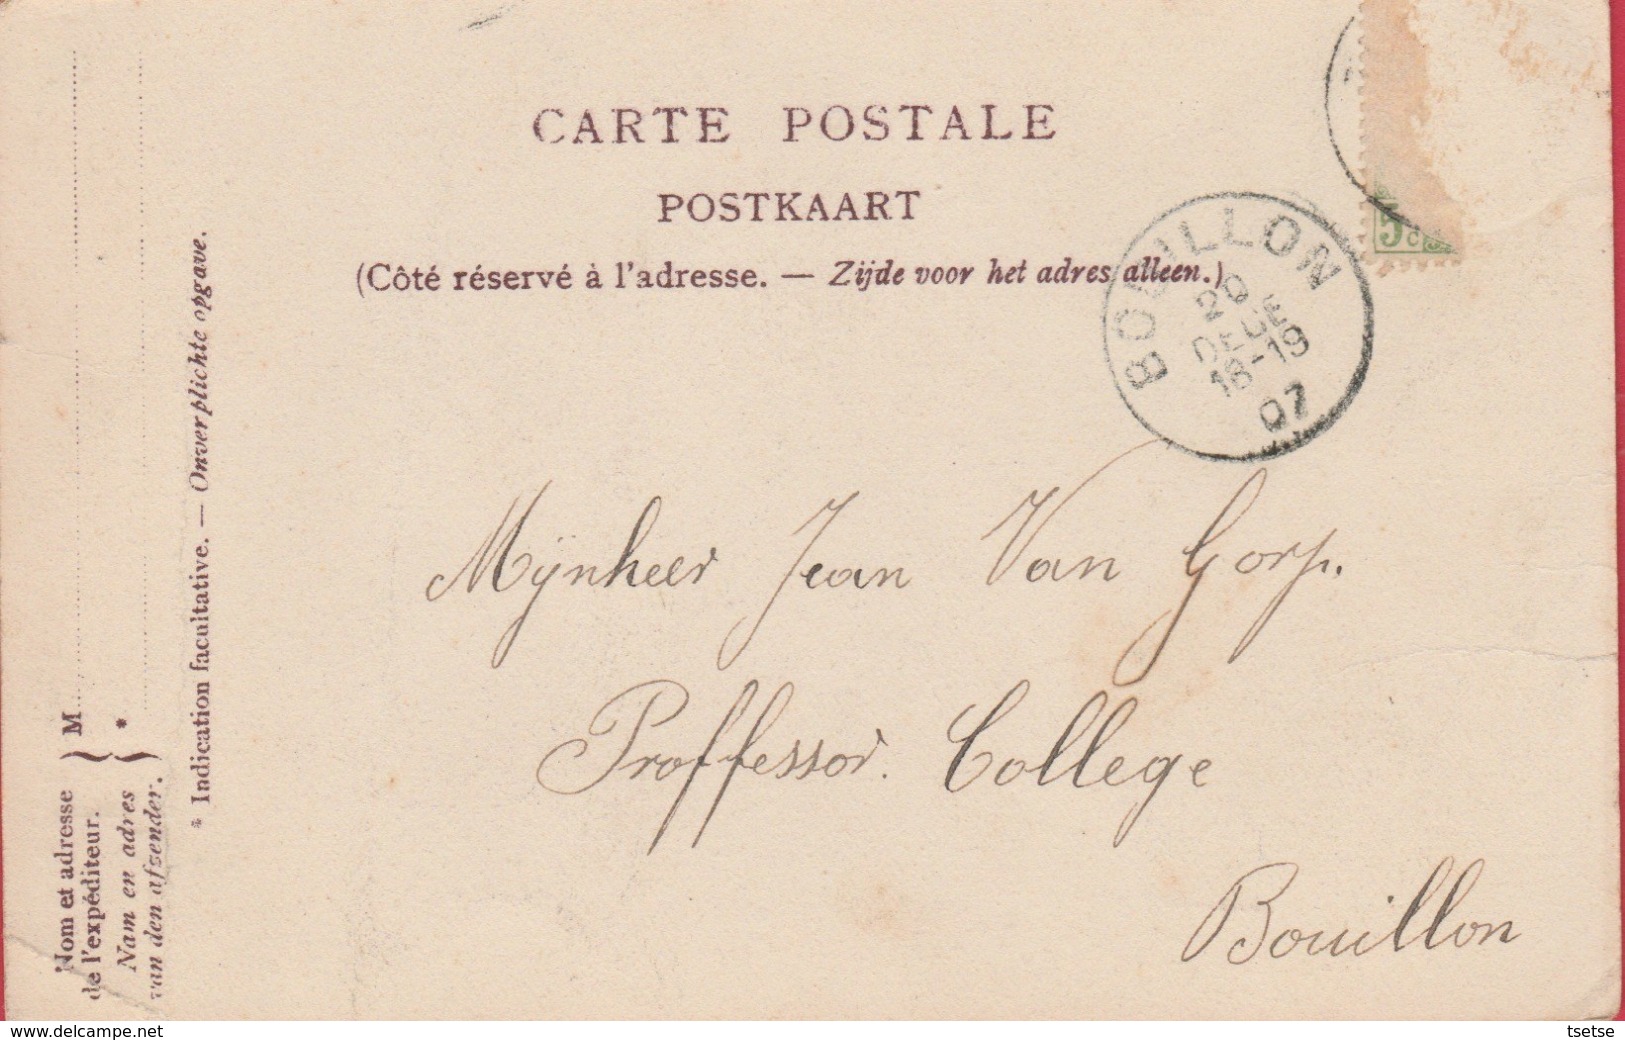 CARTE POSTALE
POSTKAART
(Côté réservé à l'adresse. — Zijde voor het adres alleen.)
5 c
BOUILLON
20
DECE
18-19
07
Mijnheer Jean Van Gorp.
Proffessor. College
Bouillon
Nom et adresse
de l'expéditeur.
Nam en adres
van den afzender.
M
*
* Indication facultative. — Onverplichte opgave.
www.delcampe.net
tsetse